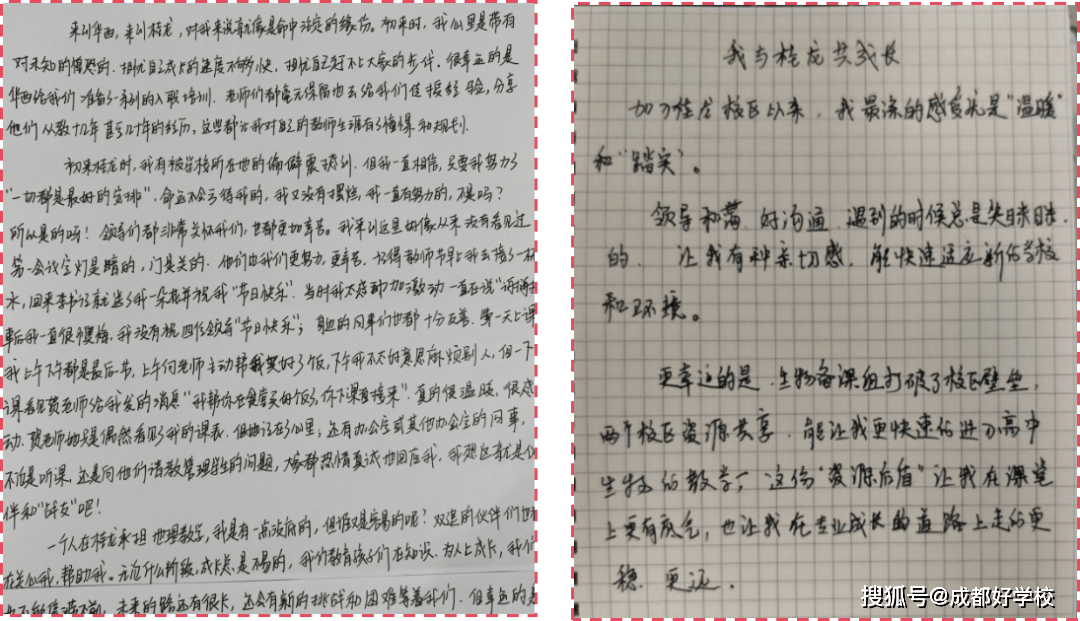 来到华西,来到桂龙,对我来说就像是命中注定的缘份。初来时,我心里是带有
对未知的惶恐的.担忧自己成长的速度不够快,担忧自己赶不上大家的步伐.很幸运的是
华西给我们准备了一系列的入职培训.老师们都毫无保留地去给我们传授经验,分享
他们从教十几年甚至几十年的经历,这些都让我对自己的教师生涯有了憧憬和规划.
初来桂龙时,我有被学校所在地的偏僻震撼到.但我一直相信,只要我努力了
"一切都是最好的安排",命运不会亏待我的,我又没有摆烂,我一直有努力的,不是吗?
所以是的吗!领导们都非常关怀我们,也都更加辛苦。我来到这里好像从来没有看见过
第一会议室灯是暗的,门是关的.他们比我们更努力,更辛苦.记得教师节早上我去接了一杯
水,回来李书记就送了我一朵花并祝我"节日快乐".当时我不感动加激动一直在说"谢谢
事后我一直很懊悔,我没有祝四位领导"节日快乐";身边的同事们也都十分友善.第一天上课
我上午下午都是最后一节,上午何老师主动帮我买好了饭,下午我不太好意思麻烦别人,但一下
课看见贺老师给我发的消息"我帮你在食堂买好饭了,你下课直接来".真的很温暖,很感
动.贺老师她只是偶然看见了我的课表.但她记在了心里;还有办公室或其他办公室的同事,
不论是听课,还是向他们请教管理学生的问题,大家都热情真诚地回应我,我想这就是伙
伴和"战友"吧!
一个人在桂龙承担地理教学,我是有一点没底的,但谁又是容易的呢?双选的伙伴们也
在关心我,帮助我。无论什么阶段,成长总是不易的,我们教育孩子们在知识、为人上成长,我们
也不能停滞不前.未来的路还有很长,还会有新的挑战和困难等着我们.但幸运的是
我与桂龙共成长
加入桂龙校区以来,我最深的感受就是"温暖"
和"踏实"。
领导和蔼,好沟通,遇到的时候总是笑眯眯
的.让我有种亲切感,能快速适应新的学校
和环境。
更幸运的是,生物备课组打破了校区壁垒,
两个校区资源共享.能让我更快速的进入高中
生物的教学,这份"资源后盾"让我在课堂
上更有底气,也让我在专业成长的道路上走的更
稳.更远.
搜狐号@成都好学校